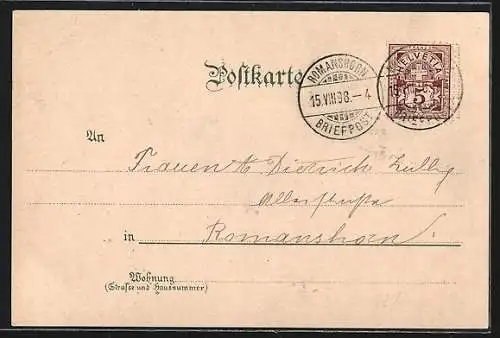 Postkarte
ROMANSHORN
15.VIII.98.-4
BRIEFPOST
HELVETIA
5
BRIEFPOST
An
Dietrich
in Romanshorn.
Wohnung
(Straße und Hausnummer)